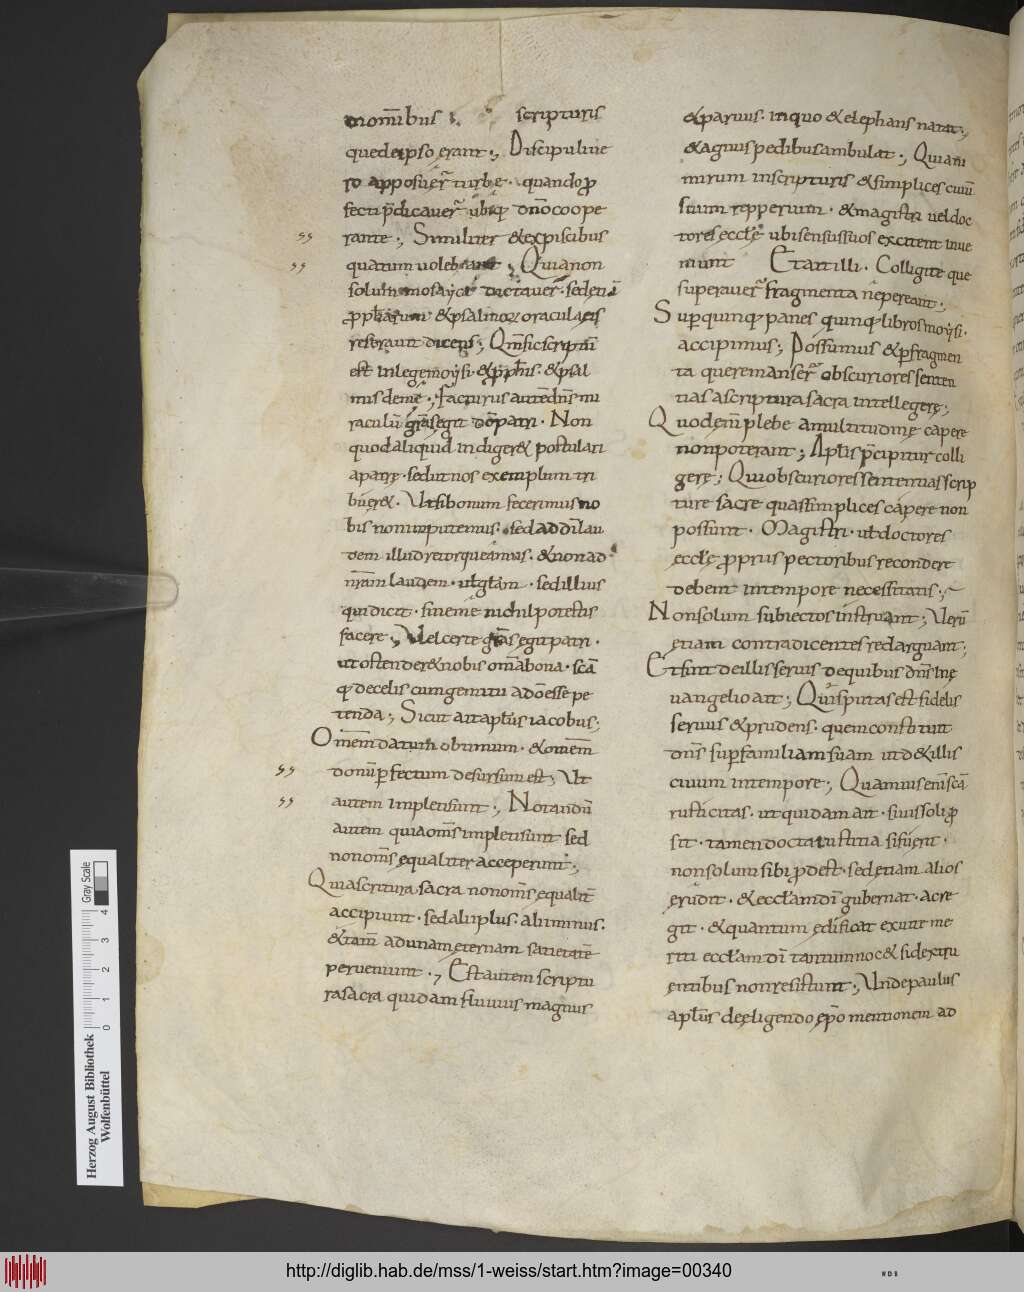 scripturis
que de ipso erant ·, Discipuli ue
ro apposuer̄ turbę · quando p̱
fecti p̄dicauer̄ ubiq; dn̄o coope
rante ·, Similiter & ex piscibus
quatum uoleb · Quia non
solum mosayce dictauer̄ · sed etiā
& psalmoꝝ oraculis eis
reserauit dicens ·, Qm̄ sic scriptū
est in lege moysi · & ꝓph̄is · & psal
mis de me ·, Facturus autē dn̄s mi
raculū gr̄as egit dō patri · Non
quod aliquid indiger& postulari
a patrę · sed ut nos exemplum tri
buer& · Ut si bonum fecerimus no
bis non inputemus · sed ad dī lau
dem illud retorqueamus · & non ad
nr̄am laudem · ut glam̄ · sed illius
qui dicit · sine me nichil potestis
facere ·, Vel certe gr̄as egit patri ·
ut ostender& nobis om̄a bona · scā
de celis cum gemitu a dō esse pe
tenda ·, Sicut ait apl̄us iacobus ;
Om̄em datum obtimum · & om̄em
donū ꝑfectum desursum est ·, Ut
autem impleti sunt ·, Notandū
autem quia om̄s impleti sunt sed
non om̄s ęqualiter acceperunt ·,
Quia scritura · sacra non om̄s ęqualit̄
accipiunt · sed alii plus · alii minus ·
& tam̄ ad unam ęternam satietatē
perueniunt ·, Est autem scriptu
ra sacra quidam fluuius magnus
& paruus · in quo & elephans natat ·,
& agnus pedibus ambulat ·, Quiam
mirum in scripturis & simplices cuiū
suum repperium · & magistri uel doc
tores ecclę ubi sensus suos excitent inue
niunt Et ait illi · Colligite que
superauer̄ fragmenta nē pereant ·,
Suꝑ quinq; panes quinq; libros moysi ·
accipimus ·, Possumus & ꝑ fragmen
ta que remanser̄ obscuriores senten
tias a scriptura sacra intellegerę ·,
Quod ęni plebe a multitudinę capere
non poterant ·, Apl̄is p̄cipitur colli
gerę ·, Qui obscuriores sententias scrip
ture sacrę quas simplices capere non
possunt · Magistri · ut doctores
ecclę propriis pectoribus recondere
debent in tempore necessitatis ·,
Non solum subiectos instruant ·, Verū
ętiam contradicentes redarguant ·,
Et sint de illis seruis de quibus dn̄s in ę
uangelio ait ·, Quis putas est fidelis
seruus & prudens · quem constituit
dn̄s suꝑ familiam suam ut d& illis
ciuum in tempore ·, Quamuis enī scā
rusticitas · ut quidam ait · suis soli ꝓ
sit · tamen docta iustitia si fuerit ·
non solum sibi ꝓdest · sed ętiam alios
ęrudit · & eccl̄am dī gubernat · a cre
git · & quantum ędificat ex uite me
riti eccl̄am dī tantum noc& si dextru
entibus non resistunt ·, Unde paulus
apl̄us de ęligendo ęp̄o mentionem ad
Gray Scale
0 1 2 3 4
Herzog August Bibliothek
Wolfenbüttel
http://diglib.hab.de/mss/1-weiss/start.htm?image=00340